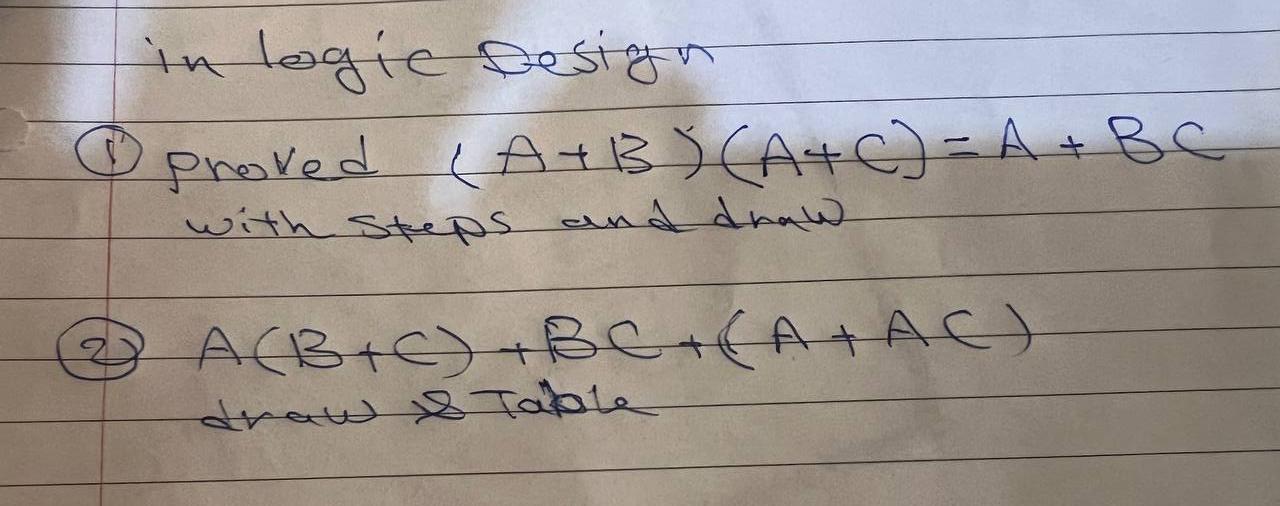 in logic Design
① proved (A+B)(A+C) = A + BC
with steps and draw
② A(B+C) + BC + (A + AC)
draw & Table